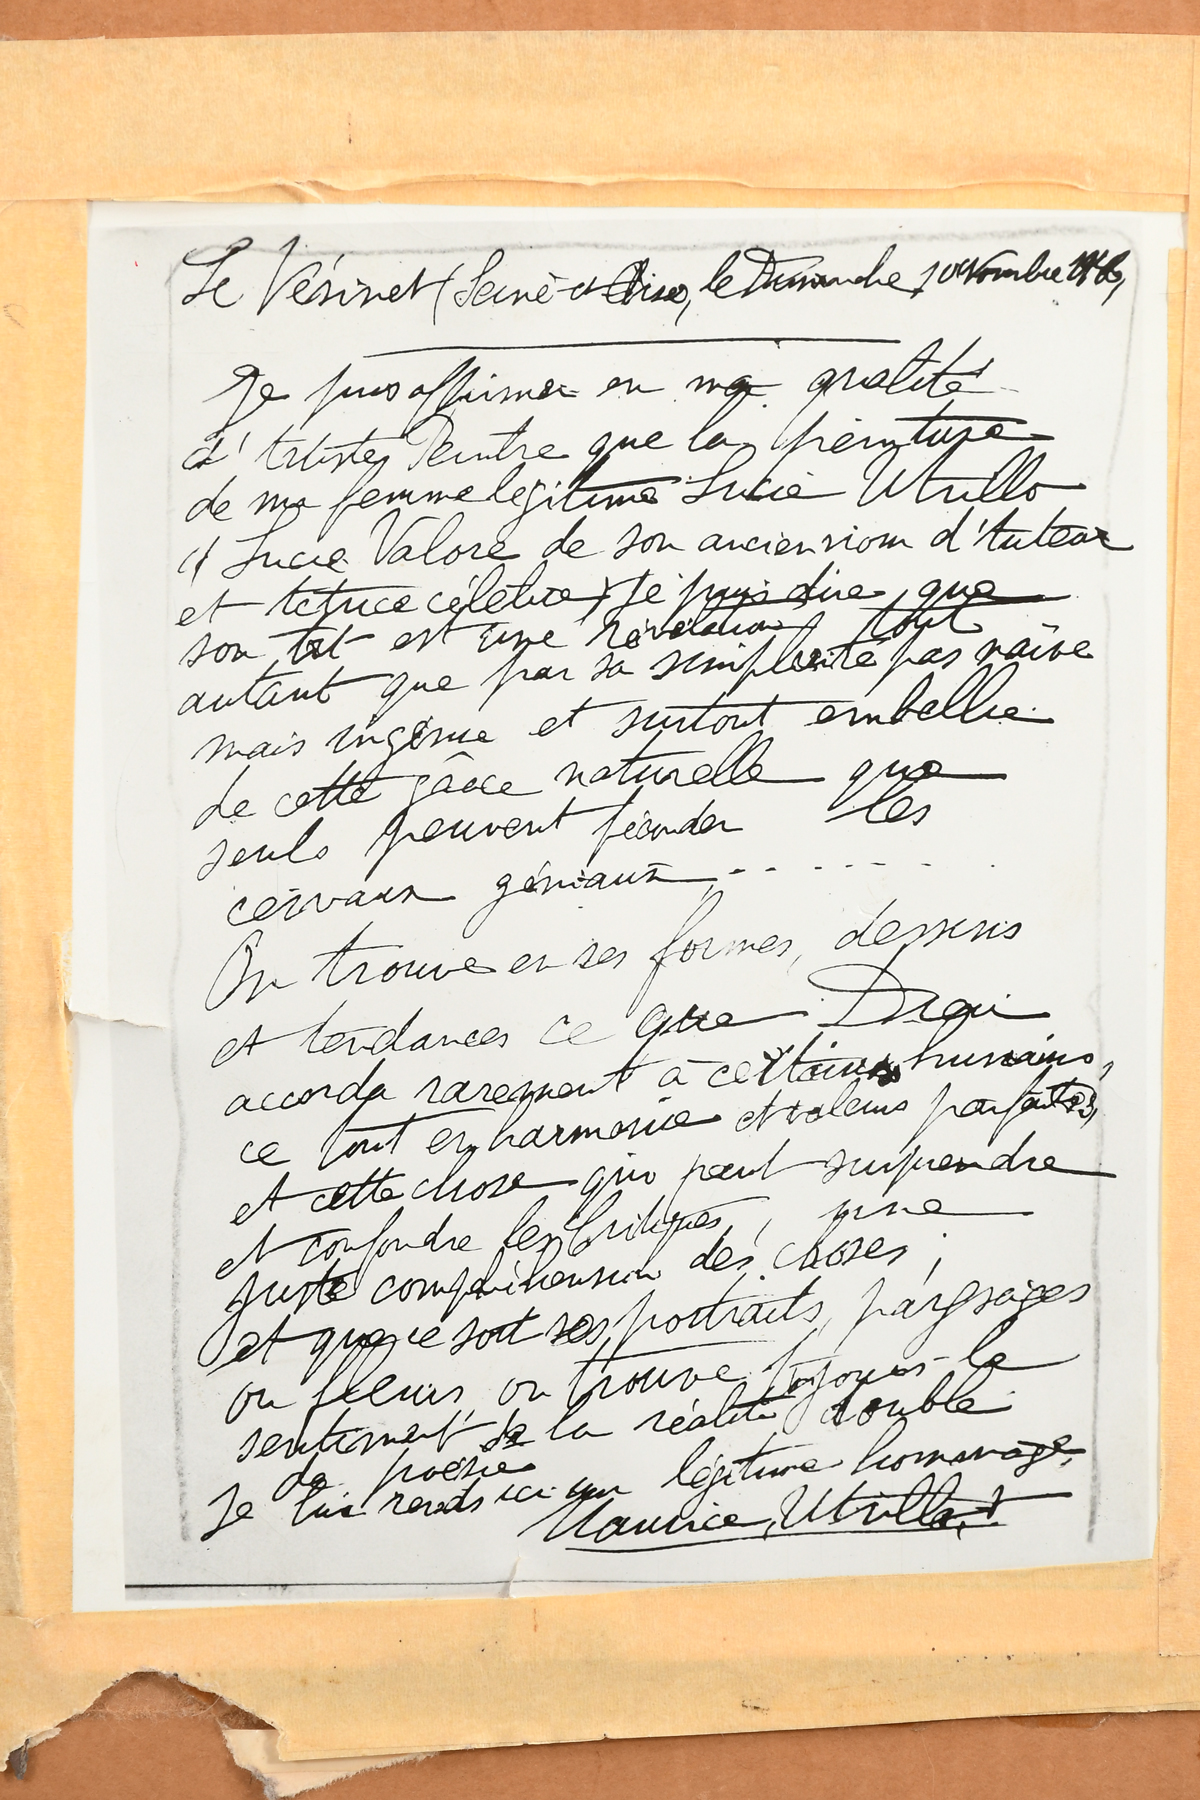 Le Vésinet (Seine-et-Oise, le Dimanche novembre
Je puis affirmer en ma qualité
d'Artiste, Peintre que la peinture
de ma femme légitime Lucie Utrillo
(Lucie Valore de son ancien nom d'Auteur
et Actrice célèbre) Je puis dire que
son Art est une révélation, tout
autant que par sa simplicité pas naïve
mais ingénue et surtout embellie
de cette grâce naturelle que
seuls peuvent féconder les
cerveaux géniaux.......
On trouve en ses formes, dessins
et tendances ce que Dieu
accorda rarement à certains humains,
ce tout en harmonie et valeurs parfaites,
et cette chose qui peut surprendre
et confondre les Critiques, une
juste compréhension des choses;
et que ce soit ses portraits, paysages
ou fleurs, on trouve toujours le
sentiment de la réalité double
de poésie
Je lui rends ici un légitime hommage,
Maurice, Utrillo,